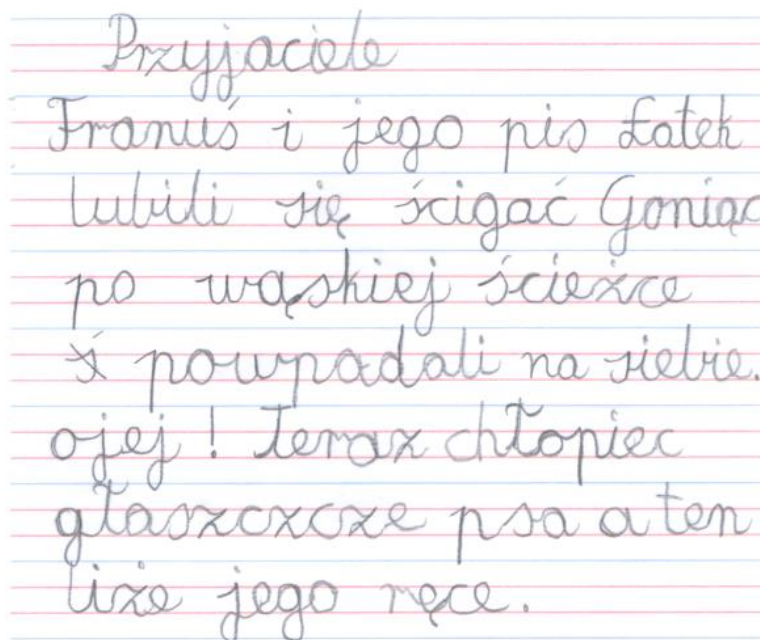 Przyjaciele
Franuś i jego pis Łatek
lubili się ścigać Goniąc
po wąskiej ścieżce
powpadali na siebie.
ojej! teraz chłopiec
głaszczcze psa a ten
liże jego ręce.